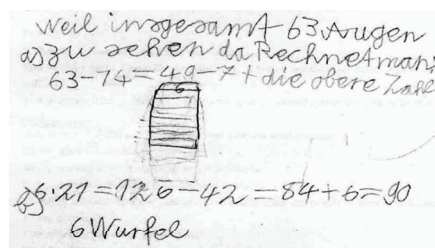 weil insgesamt 63 Augen
a) zu sehen da Rechnet man:
63-14=49-7+die obere Zahl
6
b) 6·21=126-42=84+6=90
6 Würfel